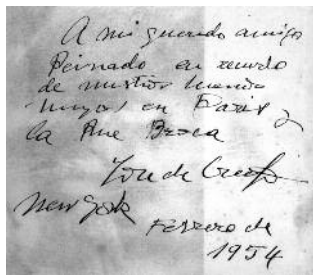 A mi querido amigo
Peinado en recuerdo
de nuestros buenos
en Paris y
la Rue Broca
José de Creeft
New York
Febrero de
1954